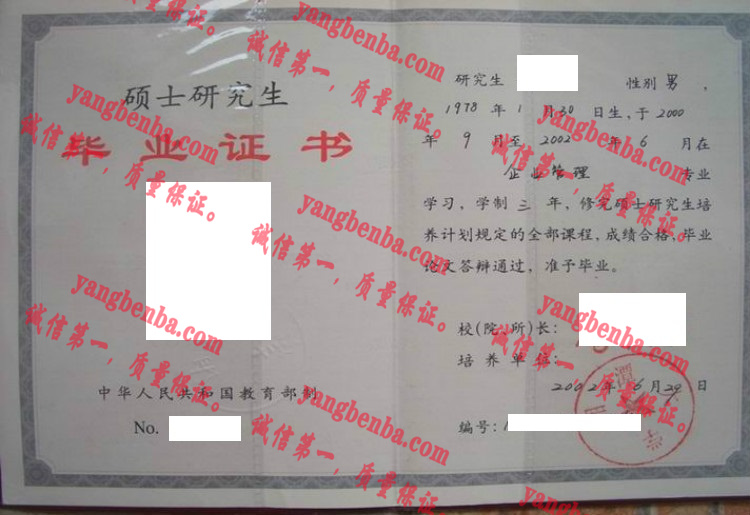 硕士研究生
毕业证书
中华人民共和国教育部制
No.
研究生 性别 男 ,
1978 年 1 月 30 日生,于 2000
年 9 月至 2002 年 6 月在
企业管理 专业
学习, 学制 三 年, 修完硕士研究生培
养计划规定的全部课程, 成绩合格, 毕业
论文答辩通过, 准予毕业。
校(院、所)长:
培养单位:
2002 年 6 月 20 日
编号:
yangbenba.com
诚信第一，质量保证。
yangbenba.com
诚信第一，质量保证。
yangbenba.com
诚信第一，质量保证。
yangbenba.com
诚信第一，质量保证。
yangbenba.com
诚信第一，质量保证。
yangbenba.com
诚信第一，质量保证。
yangbenba.com
诚信第一，质量保证。
yangbenba.com
诚信第一，质量保证。
yangbenba.com
诚信第一，质量保证。